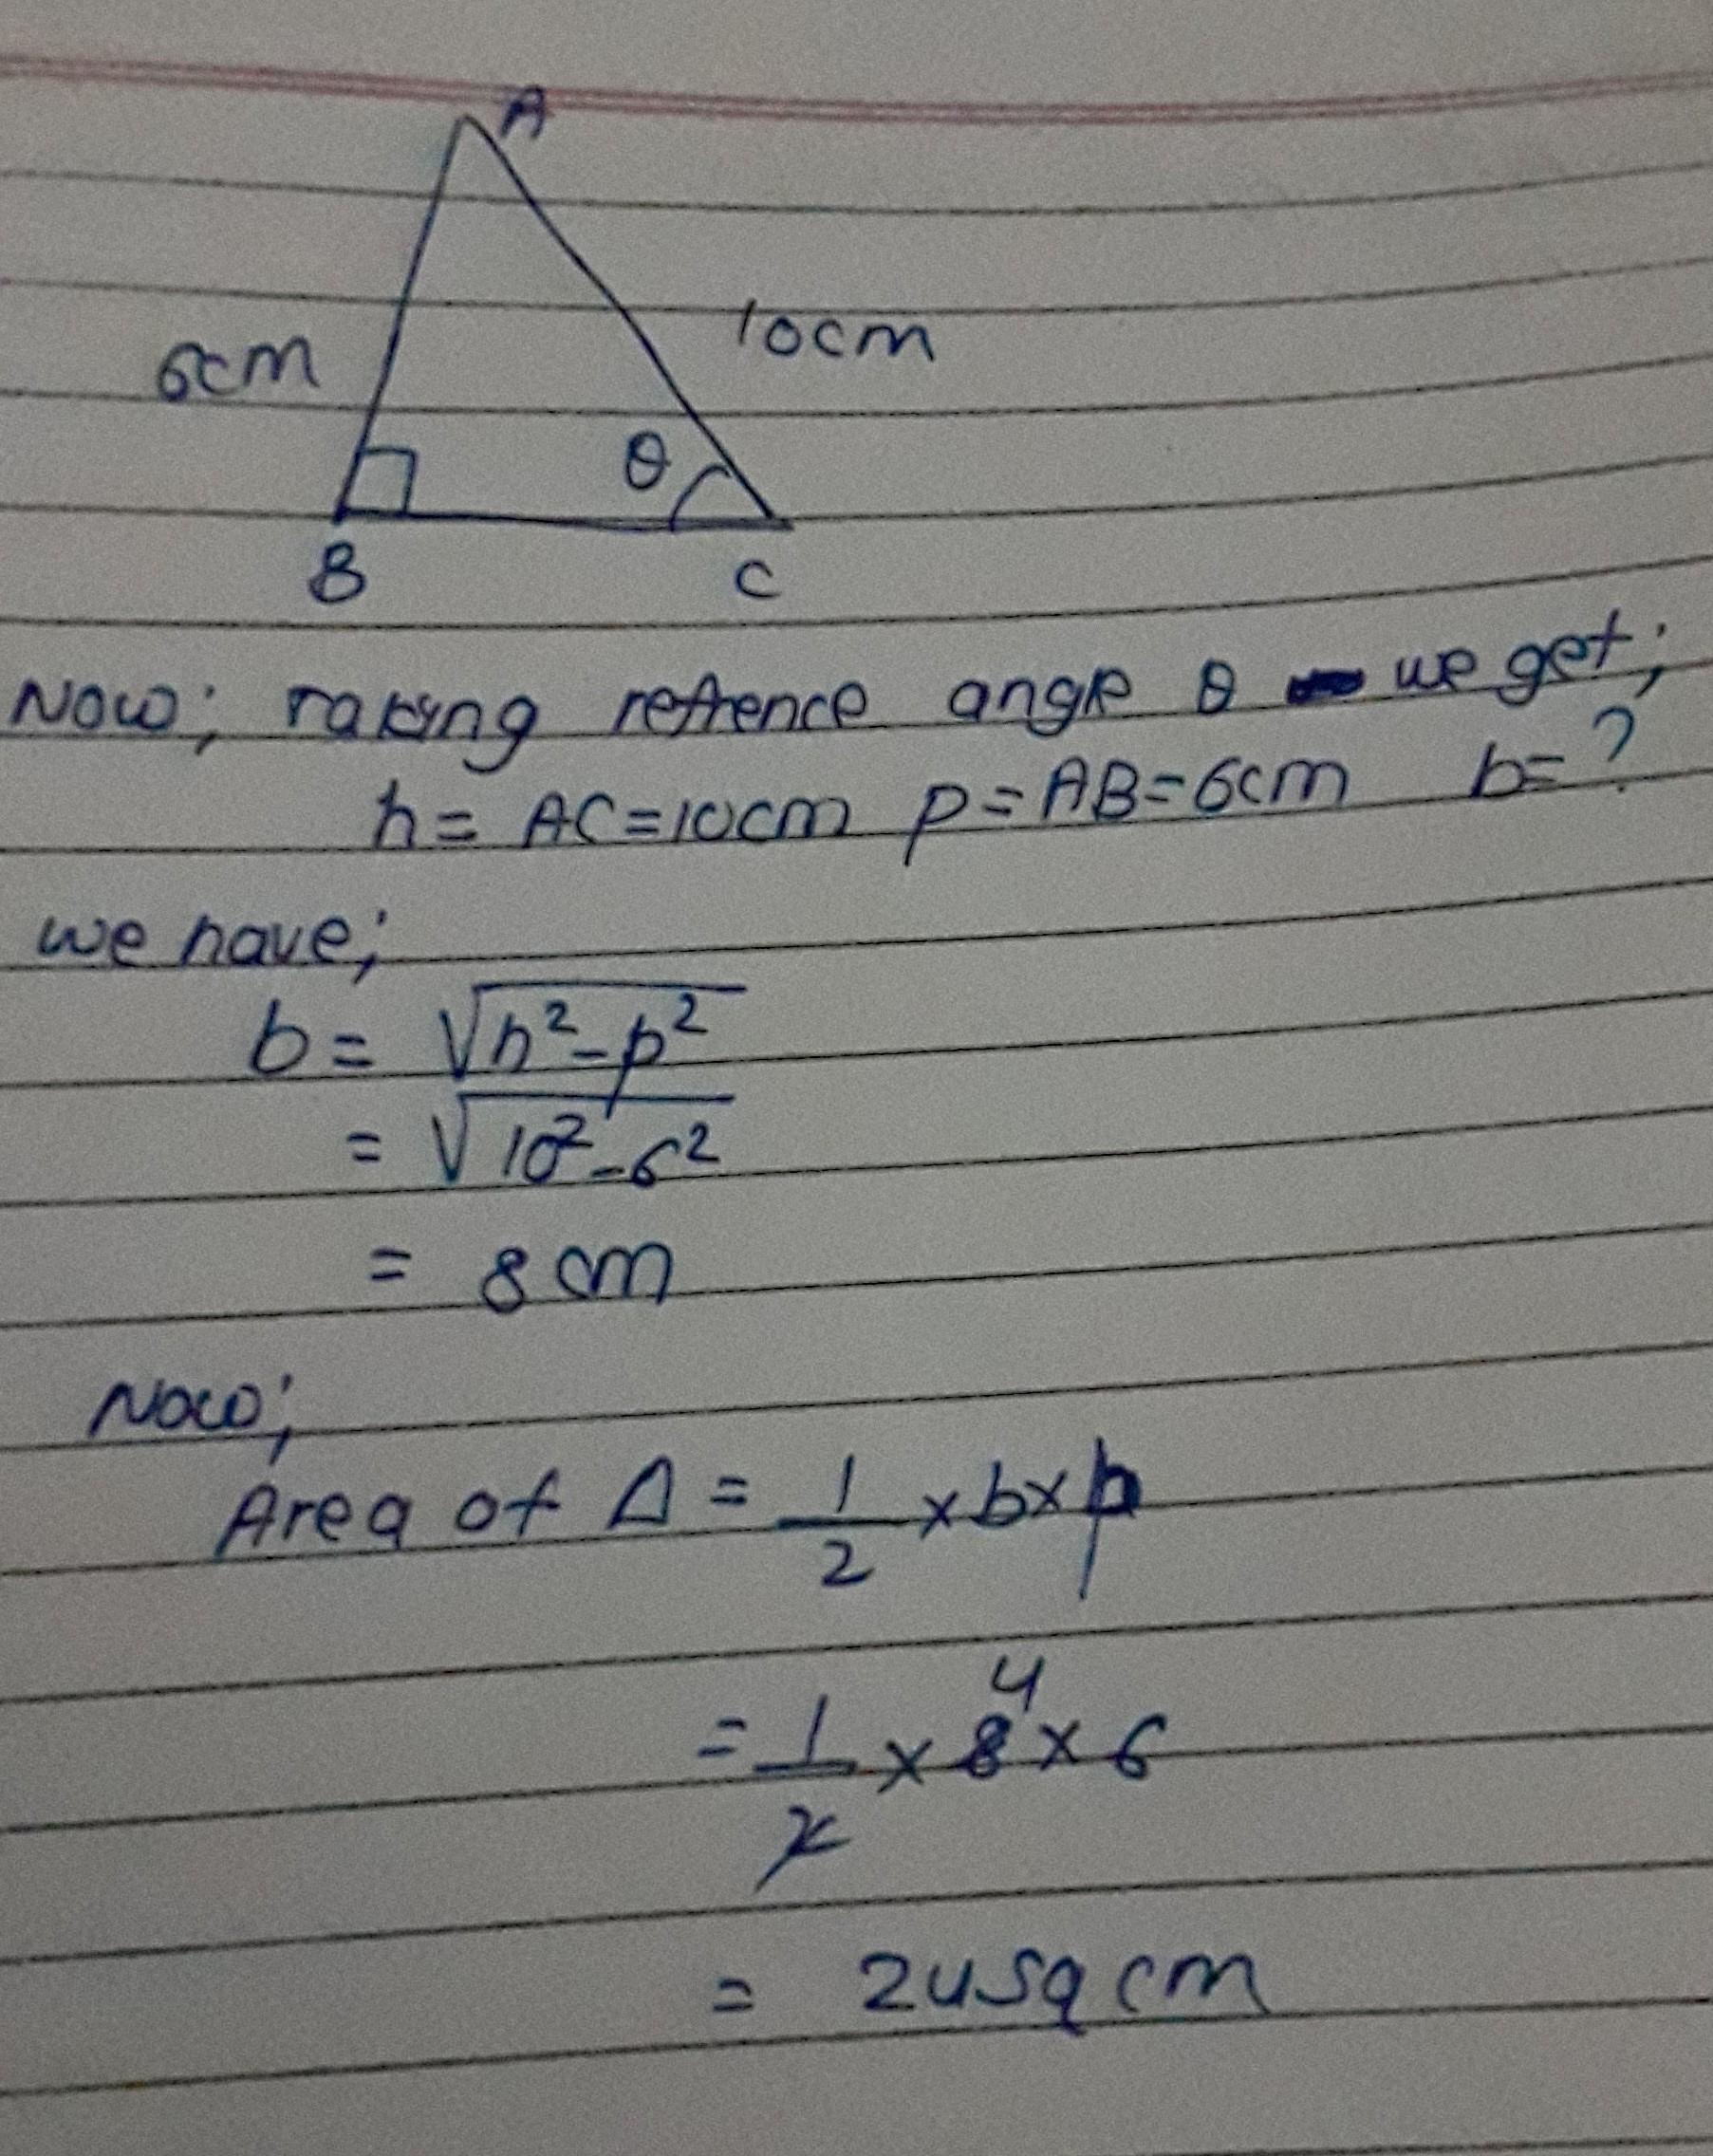 A
6cm
10cm
θ
B C
Now; taking refrence angle θ we get;
h = AC = 10cm p = AB = 6cm b = ?
we have;
b = √h² - p²
= √10² - 6²
= 8 cm
Now;
Area of Δ = 1/2 × b × p
= 1/2 × 8 4 × 6
= 24 sq cm